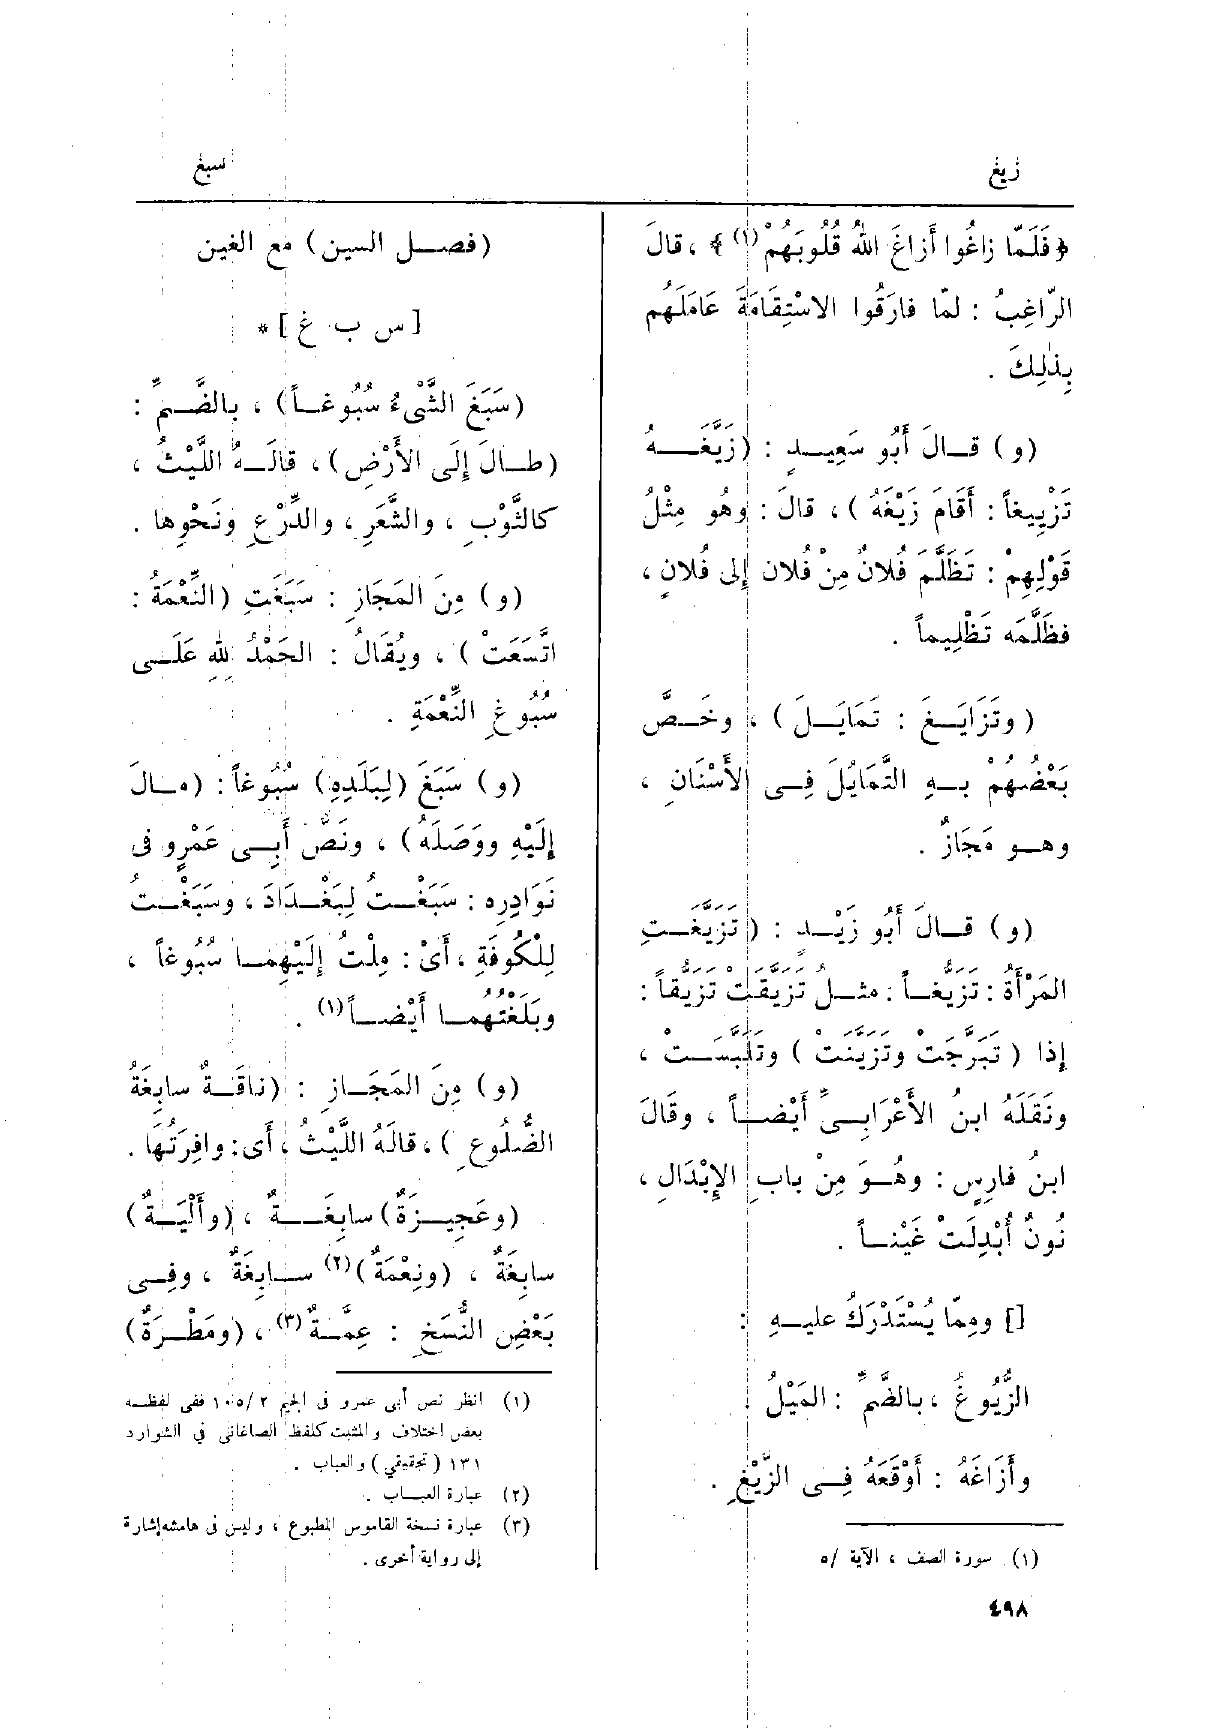 زيغ
سبغ
﴿ فَلَمّا زاغُوا أَزاغَ اللهُ قُلُوبَهُمْ (١) ﴾ ، قالَ
الرّاغِبُ : لمّا فارَقُوا الاسْتِقَامَةَ عَامَلَهُم
بِذٰلِكَ .
(و) قـالَ أَبُو سَعِيـدٍ : (زَيَّغَـهُ
تَزْيِيغاً : أَقَامَ زَيْغَهُ ) ، قالَ : وهُو مِثْلُ
قَوْلِهِمْ : تَظَلَّمَ فُلانٌ مِنْ فُلان إِلى فُلانٍ ،
فظَلَّمَه تَظْلِيماً .
( وتَزَايَـغَ : تَمَايَـلَ ) ، وخَـصَّ
بَعْضُهُمْ بـهِ التَّمَايُلَ فِـى الأَسْنَانِ ،
وهـو مَجَازٌ .
(و) قـالَ أَبُو زَيْـدٍ : ( تَزَيَّغَـتِ
المَرْأَةُ : تَزَيُّغـاً : مثـلُ تَزَيَّقَتْ تَزَيُّقاً :
إِذا ( تَبَرَّجَتْ وتَزَيَّنَتْ ) وتَلَبَّسَـتْ ،
ونَقَلَهُ ابنُ الأَعْرَابِـىِّ أَيْضـاً ، وقَالَ
ابنُ فارِسٍ : وهُـوَ مِنْ بابِ الإِبْدَالِ ،
نُونٌ أُبْدِلَتْ غَيْنـاً .
[] ومِمّا يُسْتَدْرَكُ عليـهِ :
الزُّيُوغُ ، بـالضَّمِّ : المَيْلُ .
وأَزَاغَهُ : أَوْقَعَهُ فِـى الزَّيْغِ .
(١) سورة الصف ، الآية /٥
٤٩٨
(فصـل السين) مع الغين
[ س ب غ ] *
(سَبَغَ الشَّىْءُ سُبُوغـاً) ، بالضَّـمِّ :
(طـالَ إِلَى الأَرْضِ) ، قالَـهُ اللَّيْثُ ،
كالثَّوْبِ ، والشَّعَرِ ، والدِّرْعِ ونَحْوِها .
(و) مِنَ المَجَازِ : سَبَغَتِ (النِّعْمَةُ :
اتَّسَعَتْ ) ، ويُقَالُ : الحَمْدُ للهِ عَلَـى
سُبُوغِ النِّعْمَةِ .
(و) سَبَغَ (لِبَلَدِهِ) سُبُوغاً : (مـالَ
إِلَيْهِ ووَصَلَهُ) ، ونَصُّ أَبِـى عَمْرٍو فى
نَوَادِرِه : سَبَغْـتُ لِبَغْـدَادَ ، وسَبَغْـتُ
لِلْكُوفَةِ ، أَىْ : مِلْتُ إِلَيْهِمـا سُبُوغاً ،
وبَلَغْتُهُمـا أَيْضـاً (١) .
(و) مِنَ المَجَـازِ : (ناقَـةٌ سابِغَةُ
الضُّلُوعِ ) ، قالَهُ اللَّيْثُ ، أَى : وافِرَتُهَا .
(وعَجِيـزَةٌ) سابِغَـةٌ ، (وأَلْيَـةٌ)
سابِغَةٌ ، (ونِعْمَةٌ) (٢) سـابِغَةٌ ، وفِـى
بَعْضِ النُّسَخِ : عِمَّـةٌ (٣) ، (ومَطْـرَةٌ)
(١) انظر نص أبى عمرو فى الجيم ١٠٥/٢ ففى لفظـه
بعض اختلاف والمثبت كلفظ الصاغانى فى الشوارد
١٣١ (تحقيقي) والعباب .
(٢) عبارة العبـاب .
(٣) عبارة نسخة القاموس المطبوع ، وليس فى هامشه إشارة
إلى رواية أخرى .